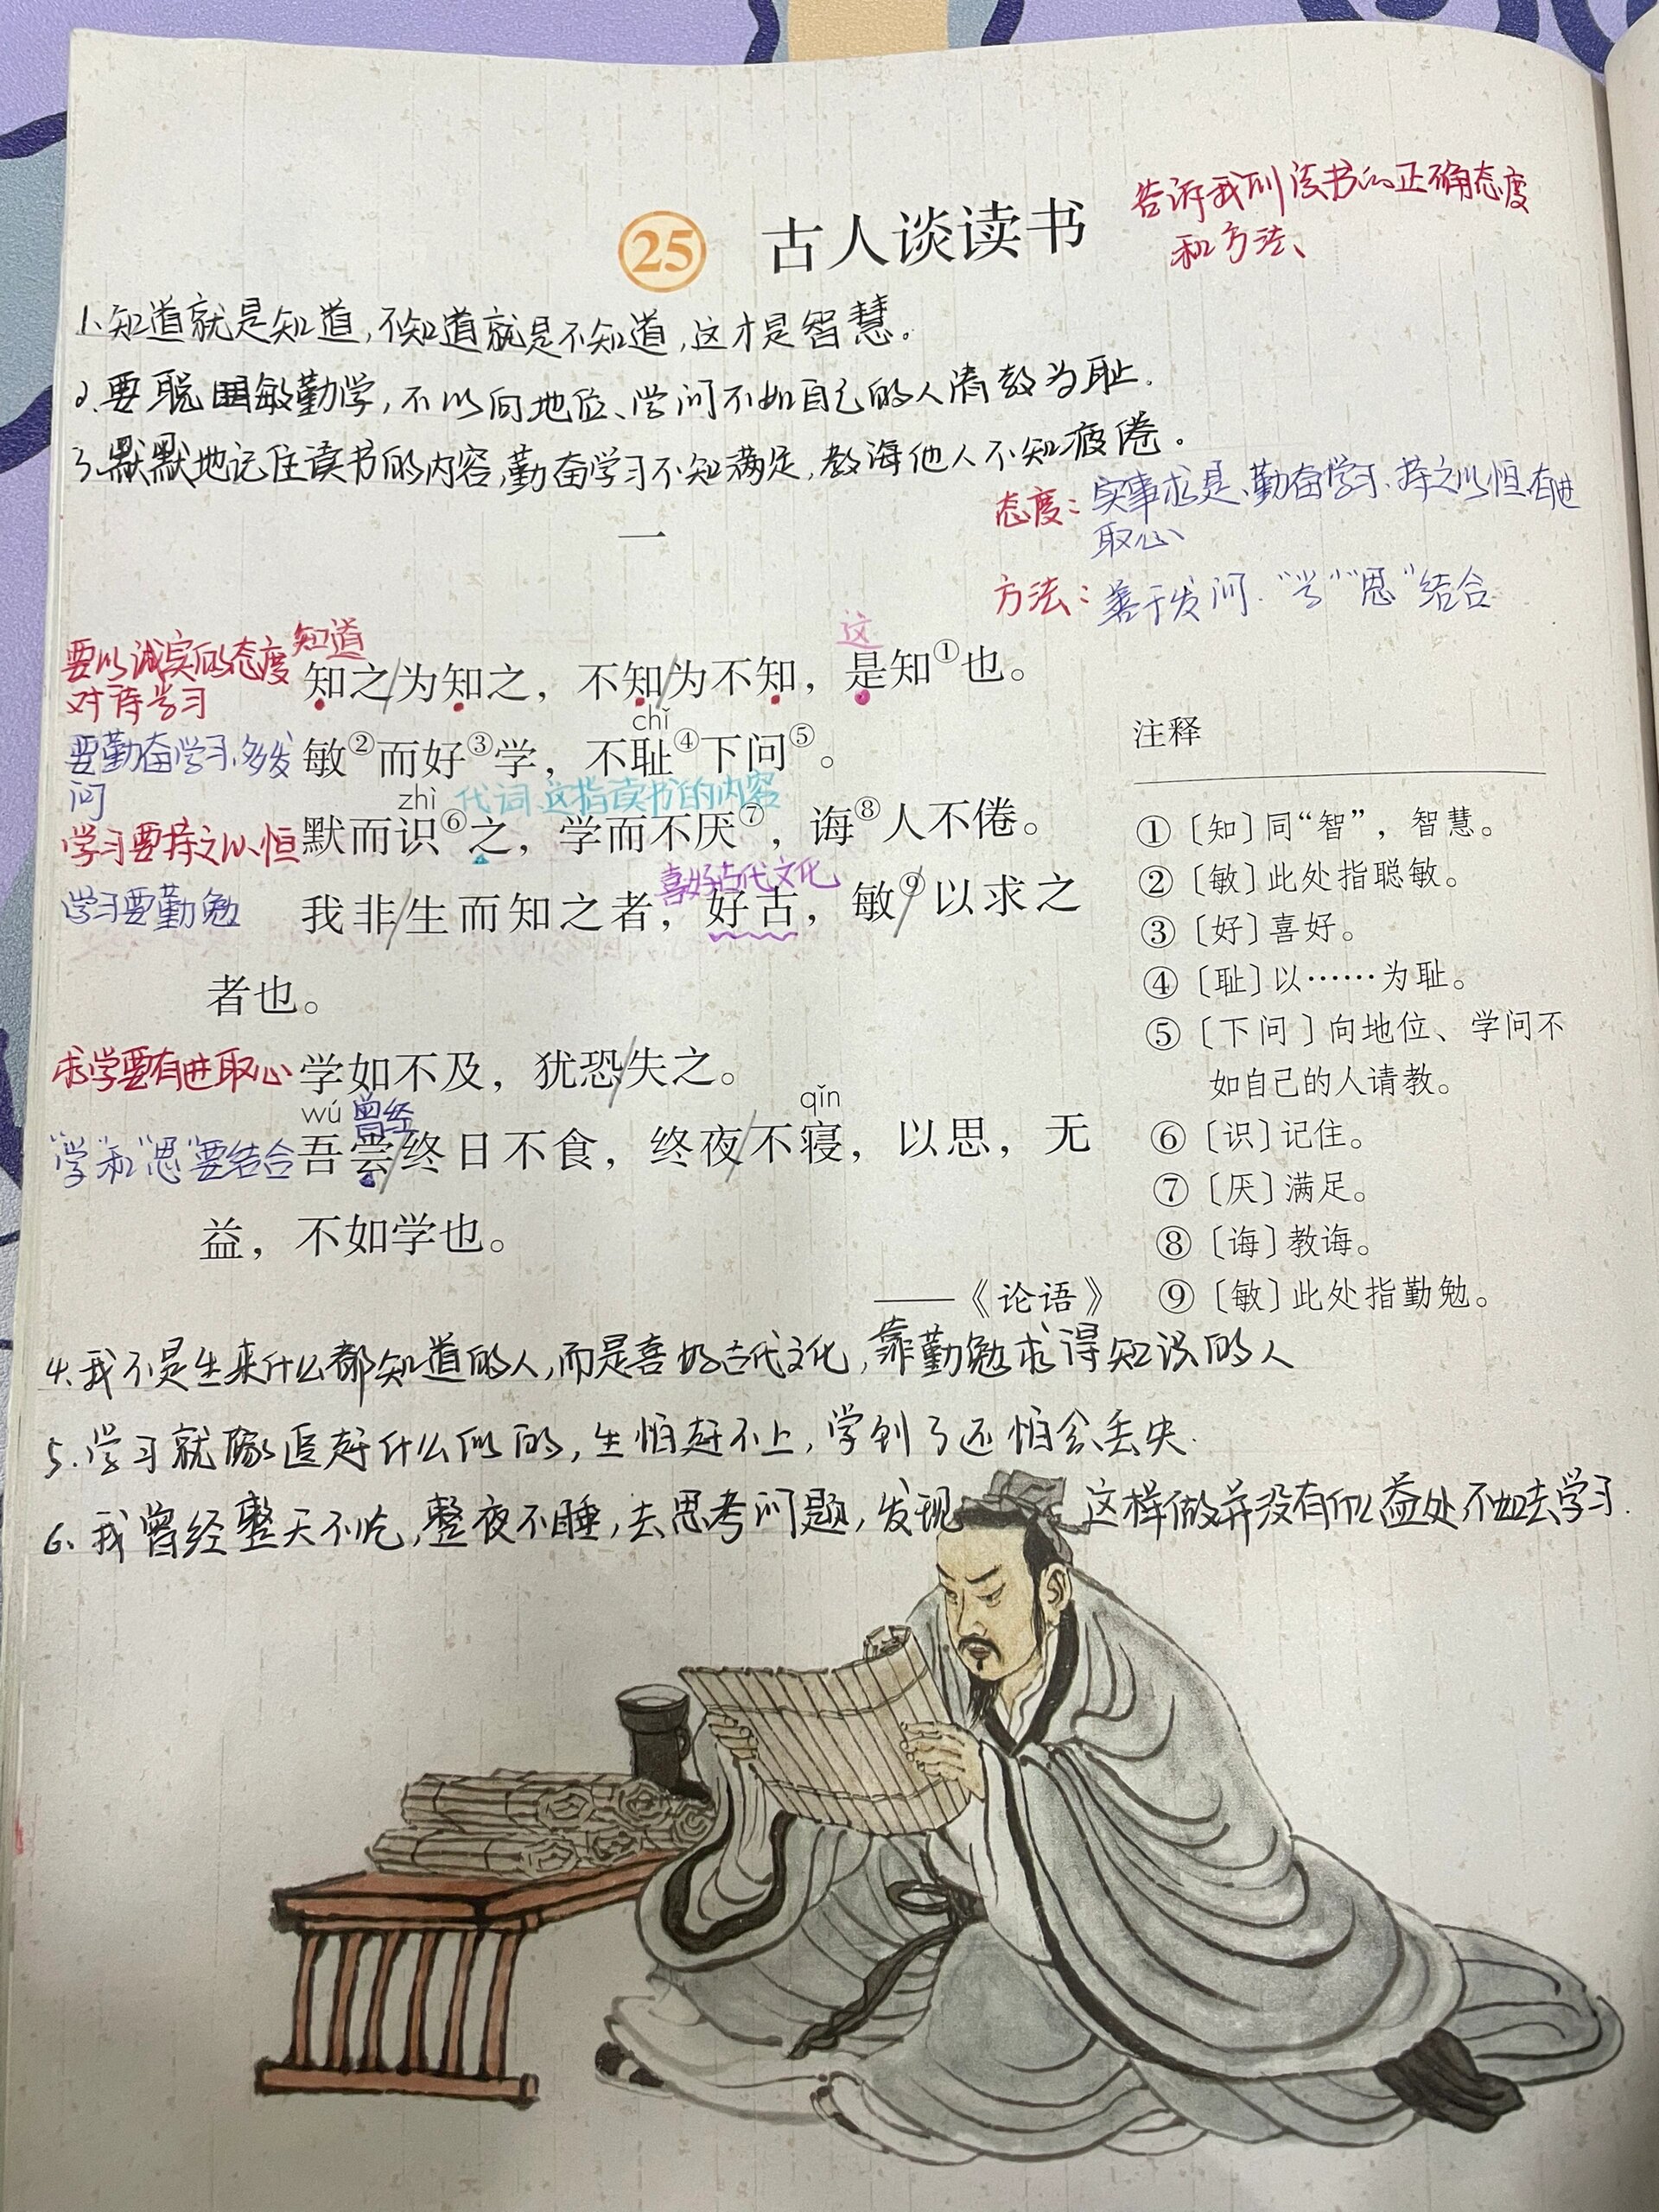 告诉我们读书的正确态度
和方法、
25 古人谈读书
1、知道就是知道,不知道就是不知道,这才是智慧。
2、要聪明敏勤学,不以向地位、学问不如自己的人请教为耻.
3、默默地记住读书的内容,勤奋学习不知满足,教诲他人不知疲倦。
态度:实事求是、勤奋学习、持之以恒、有进
取心
一
方法:善于发问、“学”“思”结合
要以诚实的态度
对待学习
知道
这
知之/为知之,不知/为不知,是知①也。
要勤奋学习,多发
问
chǐ
敏②而好③学,不耻④下问⑤。
zhì 代词、这指读书的内容
学习要持之以恒
默而识⑥之,学而不厌⑦,诲⑧人不倦。
喜好古代文化
学习要勤勉
我非/生而知之者,好古,敏⑨/以求之
者也。
求学要有进取心
学如不及,犹恐/失之。
wú 曾经 qǐn
“学”和“思”要结合
吾尝/终日不食,终夜/不寝,以思,无
益,不如学也。
——《论语》
注释
①〔知〕同“智”,智慧。
②〔敏〕此处指聪敏。
③〔好〕喜好。
④〔耻〕以……为耻。
⑤〔下问〕向地位、学问不
如自己的人请教。
⑥〔识〕记住。
⑦〔厌〕满足。
⑧〔诲〕教诲。
⑨〔敏〕此处指勤勉。
4、我不是生来什么都知道的人,而是喜好古代文化,靠勤勉求得知识的人
5、学习就像追赶什么似的,生怕赶不上,学到了还怕会丢失.
6、我曾经整天不吃,整夜不睡,去思考问题,发现这样做并没有什么益处,不如去学习.